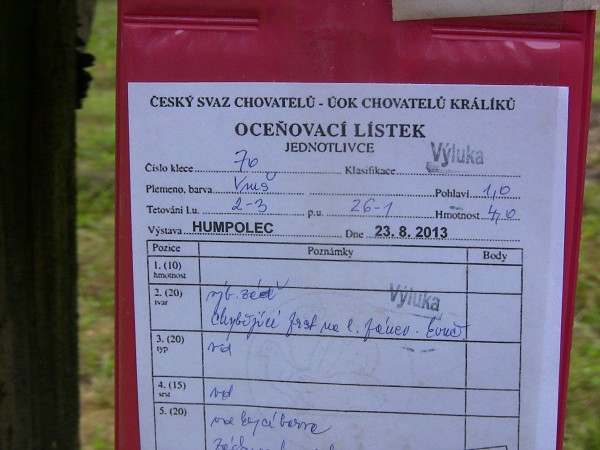 ČESKÝ SVAZ CHOVATELŮ - ÚOK CHOVATELŮ KRÁLÍKŮ
OCEŇOVACÍ LÍSTEK
JEDNOTLIVCE
Číslo klece 70 Klasifikace Výluka
Plemeno, barva Pohlaví 1,0
Tetování l.u. 2-3 p.u. 26-1 Hmotnost 4,0
Výstava HUMPOLEC Dne 23. 8. 2013
Pozice Poznámky Body
1. (10)
hmotnost
2. (20) výb. záď Výluka
tvar chybějící prst na
3. (20) vd
typ
4. (15) vd
srst
5. (20) barva